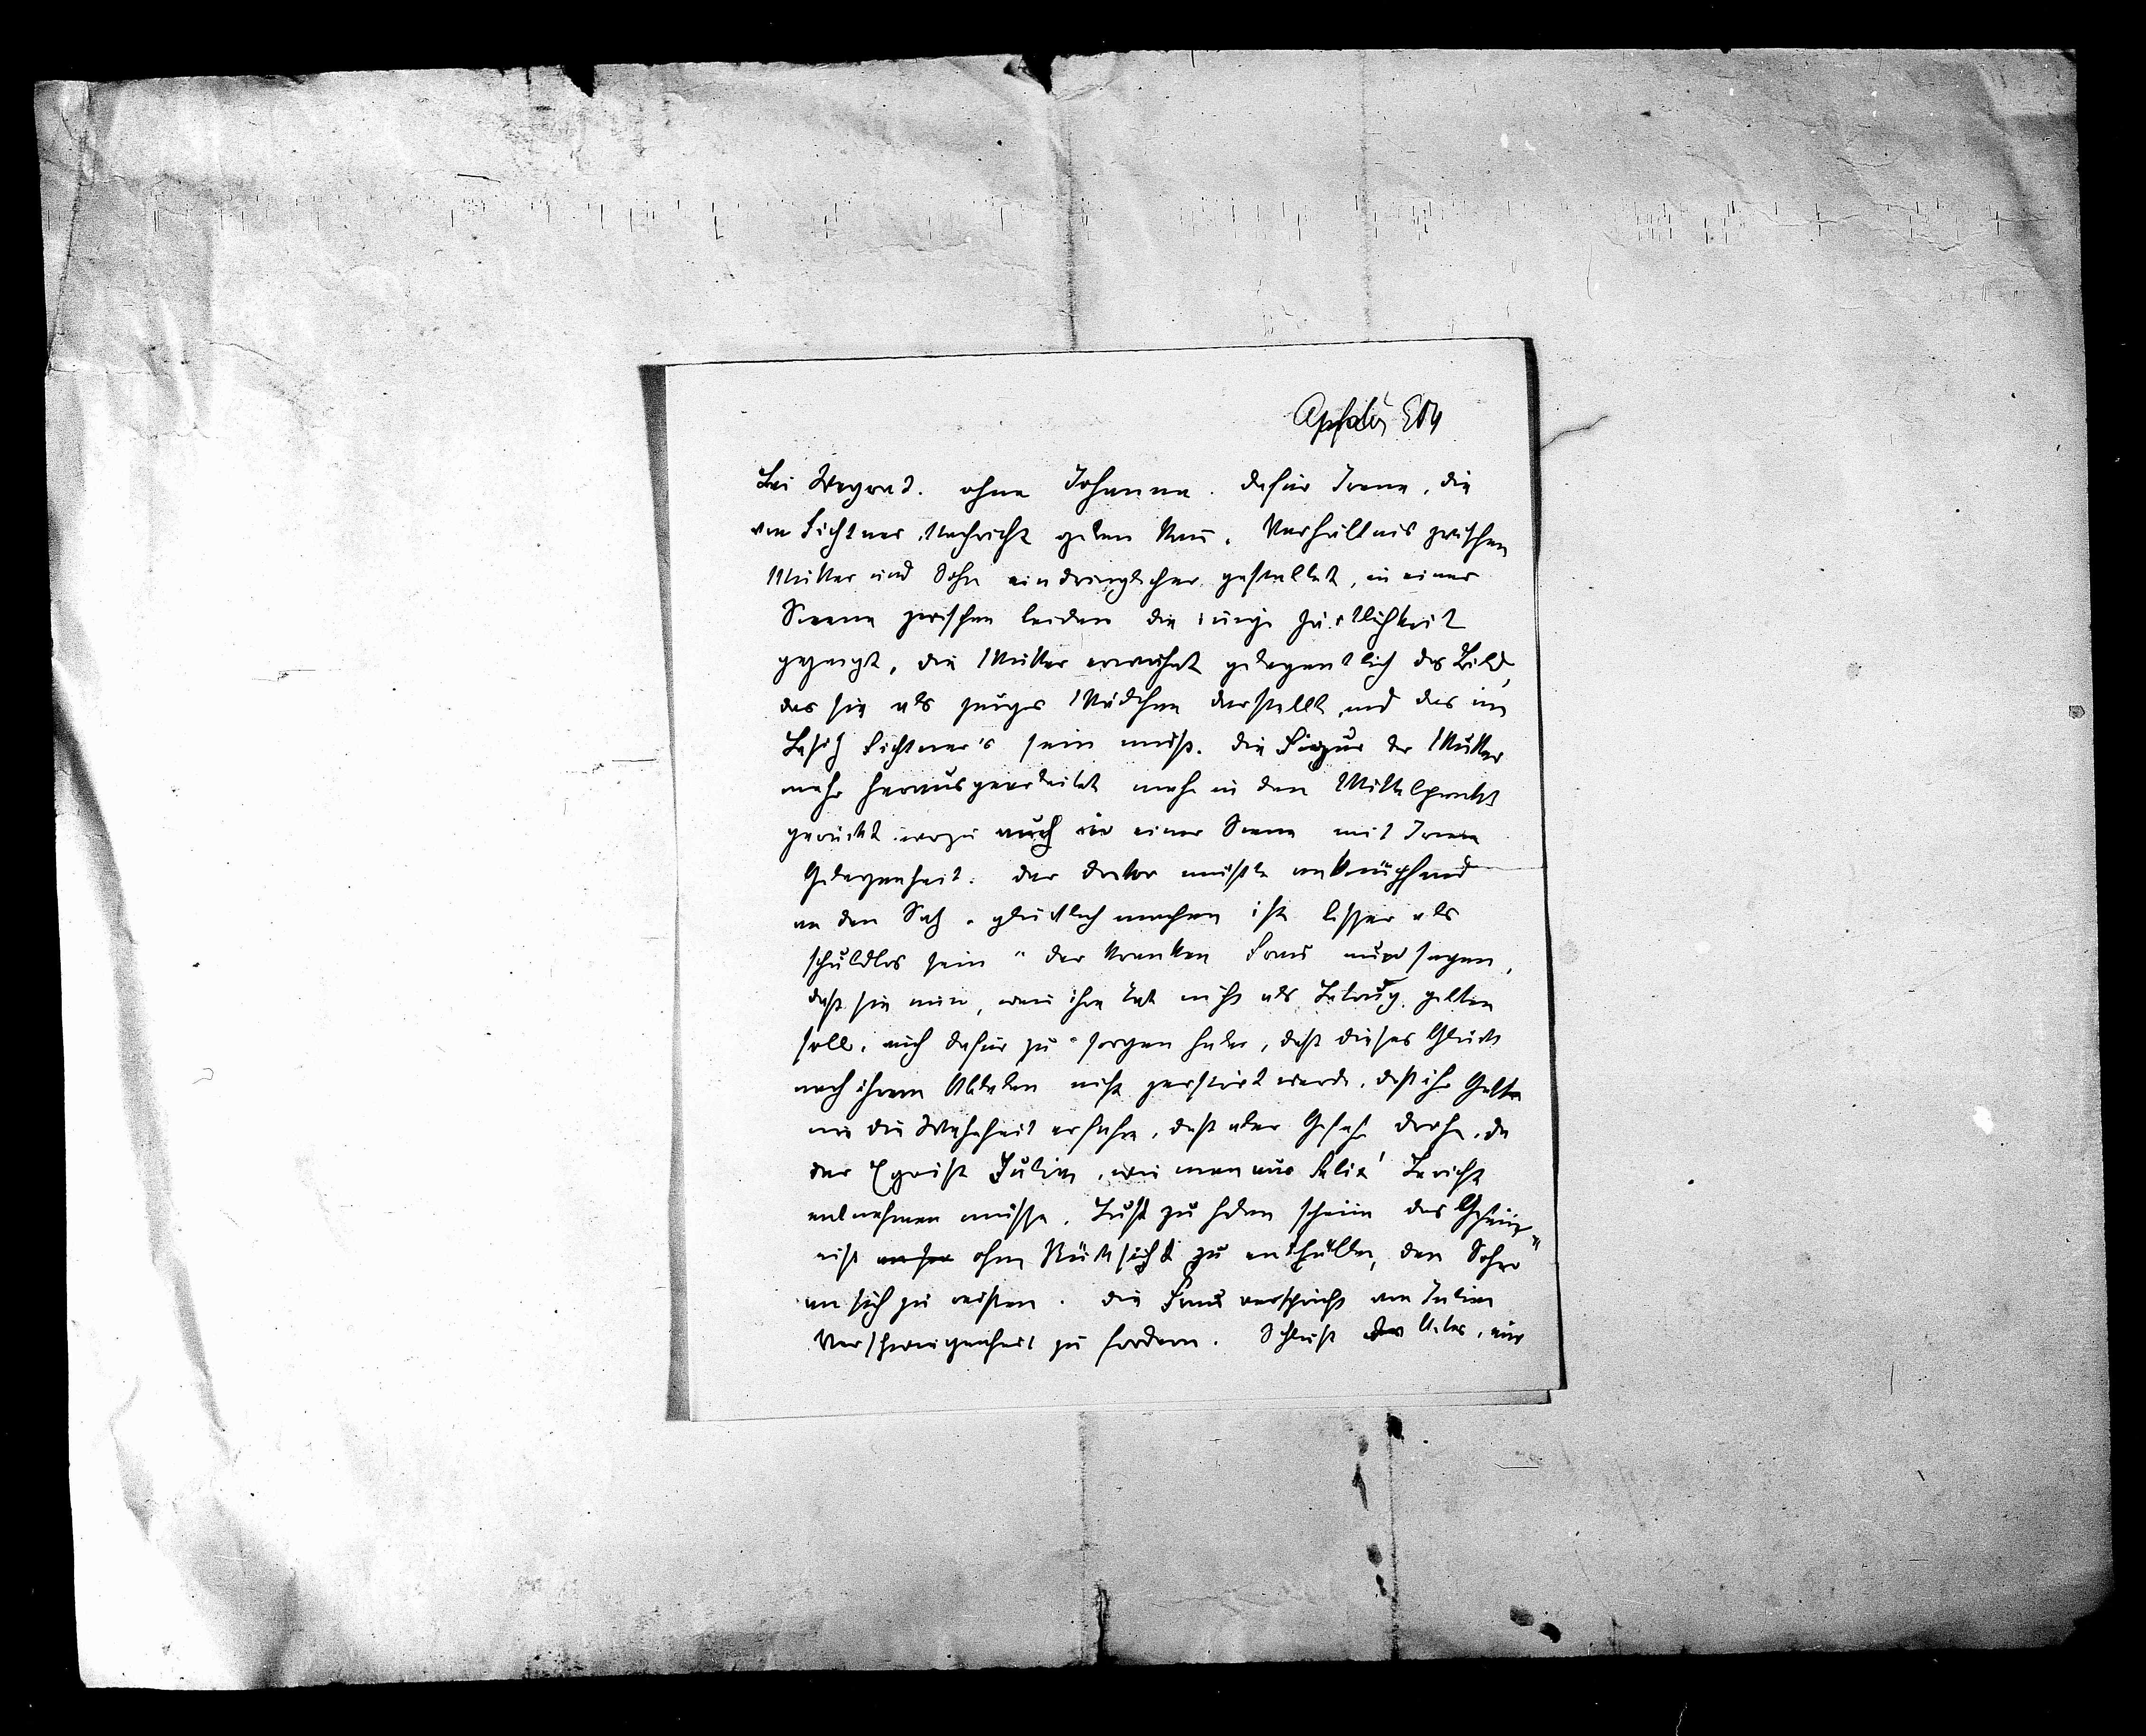 Bei Wegrat. ohne Johanna. dafür Irene, die
von Fichtner Nachricht geben kann. Verhältnis zwischen
Mutter und Sohn eindringlicher gestaltet, in einer
Scene zwischen beiden die innige Zärtlichkeit
gezeigt, die Mutter erwähnt gelegentlich das Bild,
das sie als junges Mädchen darstellt und das im
Besitz Fichtner's sein muß. die Figur der Mutter
mehr herausgearbeitet mehr in den Mittelpunkt
gerückt wozu auch in einer Scene mit Irene
Gelegenheit. der Doktor müßte anknüpfend
an den Satz „glücklich machen ist besser als
schuldlos sein" der kranken Frau nun sagen,
daß sie nun, wenn ihre Tat nicht als Betrug gelten
soll, auch dafür zu sorgen habe, daß dieses Glück
nach ihrem Ableben nicht zerstört werde, daß ihr Gatte
nie die Wahrheit erfahre, daß aber Gefahr drohe, da
der Egoist Julian, wie man aus Felix' Bericht
entnehmen müsse, Lust zu haben scheine das Geheim-
nis ohne Rücksicht zu enthüllen, den Sohn
an sich zu reißen. die Frau verspricht von Julian
Verschwiegenheit zu fordern. Schluß des Aktes, nur